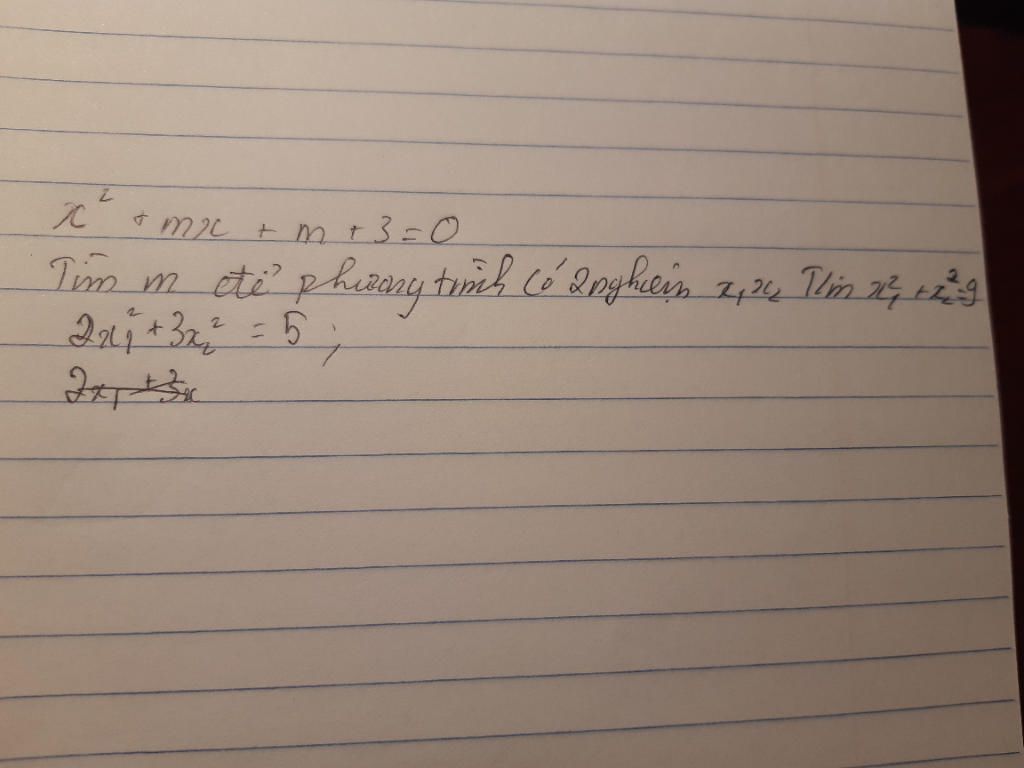 x² + mx + m + 3 = 0
Tìm m để phương trình có 2 nghiệm x₁ x₂ Tìm x₁² + x₂² = 9
2x₁² + 3x₂² = 5 ;
2x₁ + 3x